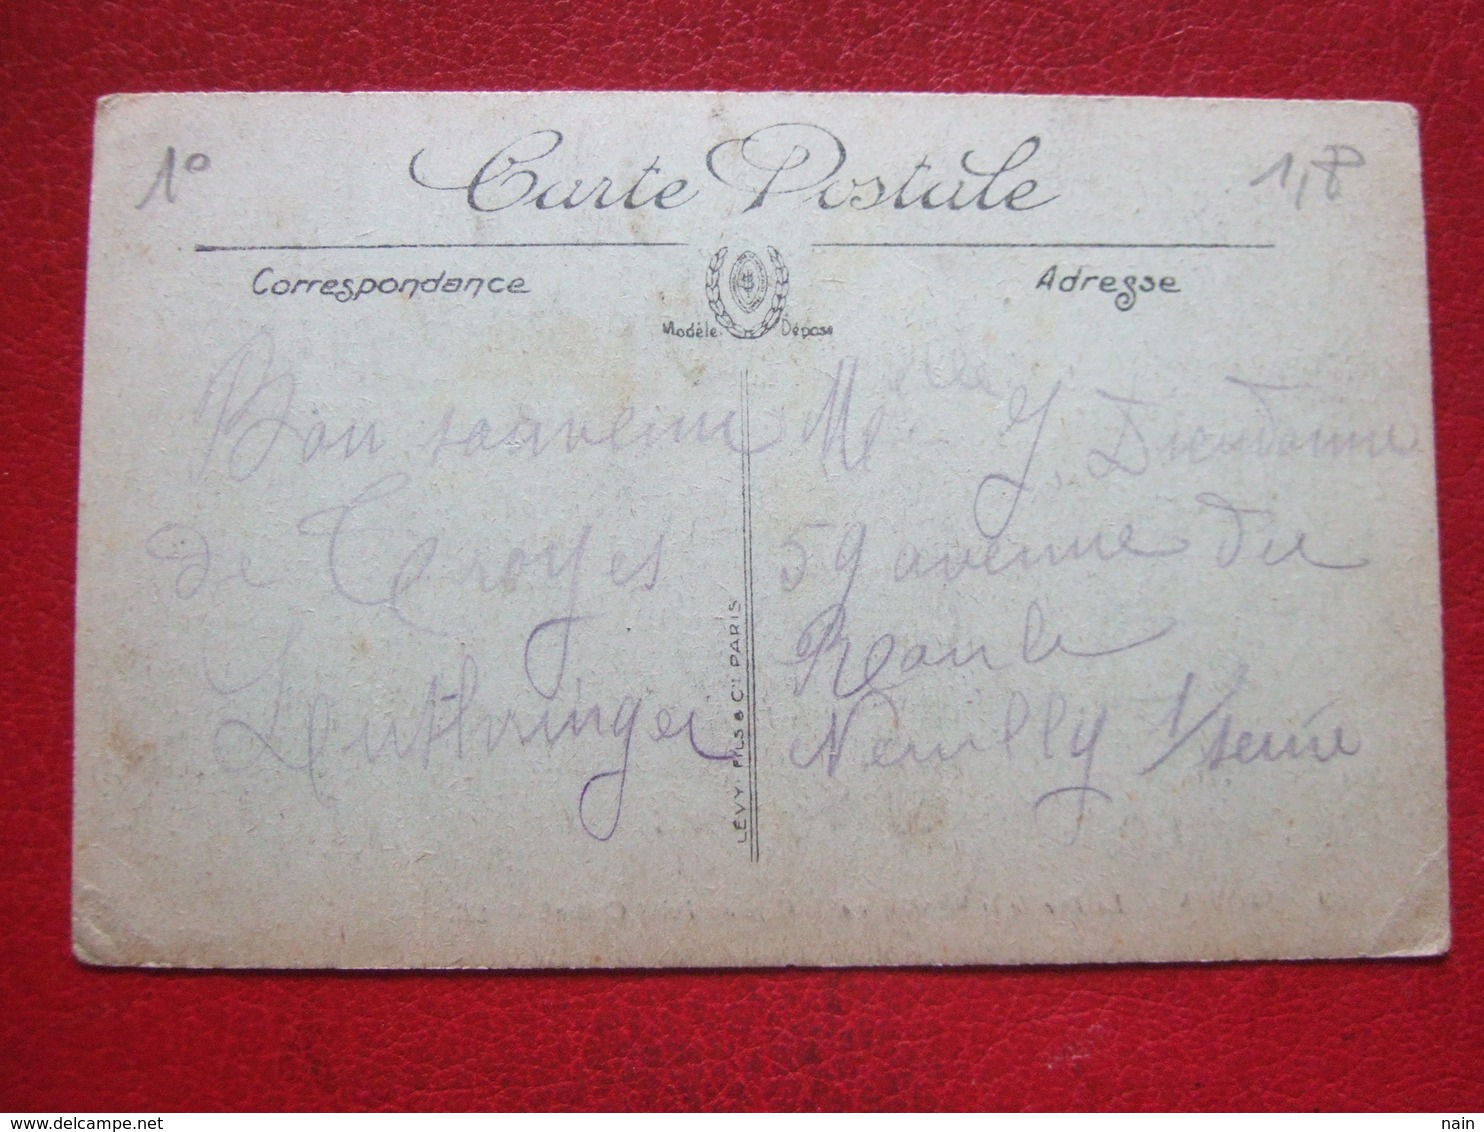 1°
Carte Postale
1,8
Correspondance
Adresse
Modèle Déposé
Bon souvenir
de Troyes
LÉVY FILS & Cie PARIS
Melle J. Dieudonné
59 avenue du
Roule
Neuilly s/ seine
nain
delcampe.net